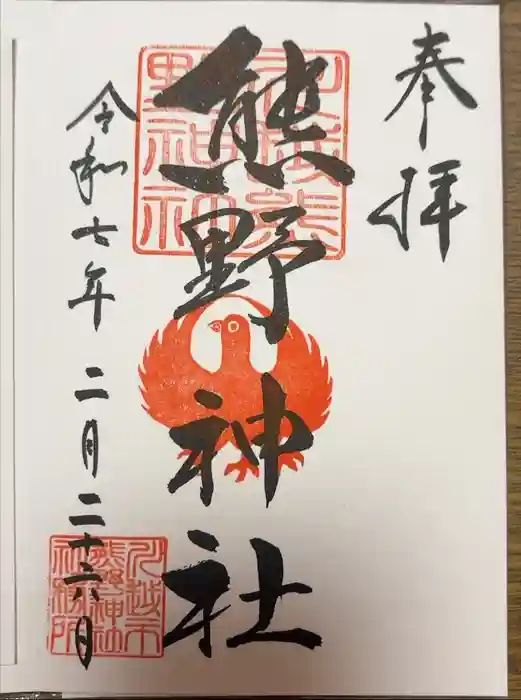 奉拝
川越熊
野神社
熊野神社
令和七年 二月二十六日
川越市
熊野神社
社務所